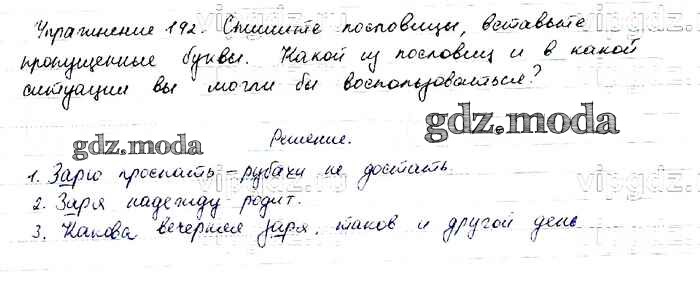 Упражнение 192. Спишите пословицы, вставьте
пропущенные буквы. Какой из пословиц и в какой
ситуации вы могли бы воспользоваться?
gdz.moda
Решение.
gdz.moda
1. Зарю проспать – рубахи не достать.
2. Заря надежду родит.
3. Какова вечерняя заря, таков и другой день